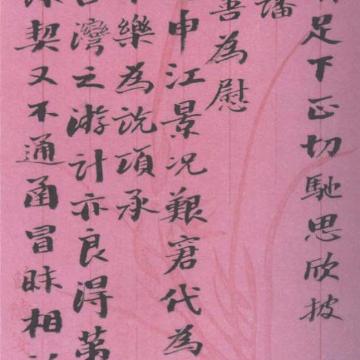 足下正切馳思欣披
善為慰
申江景況艱窘代為
樂為說項承
臺灣之游計亦良得第
契又不通函冒昧相